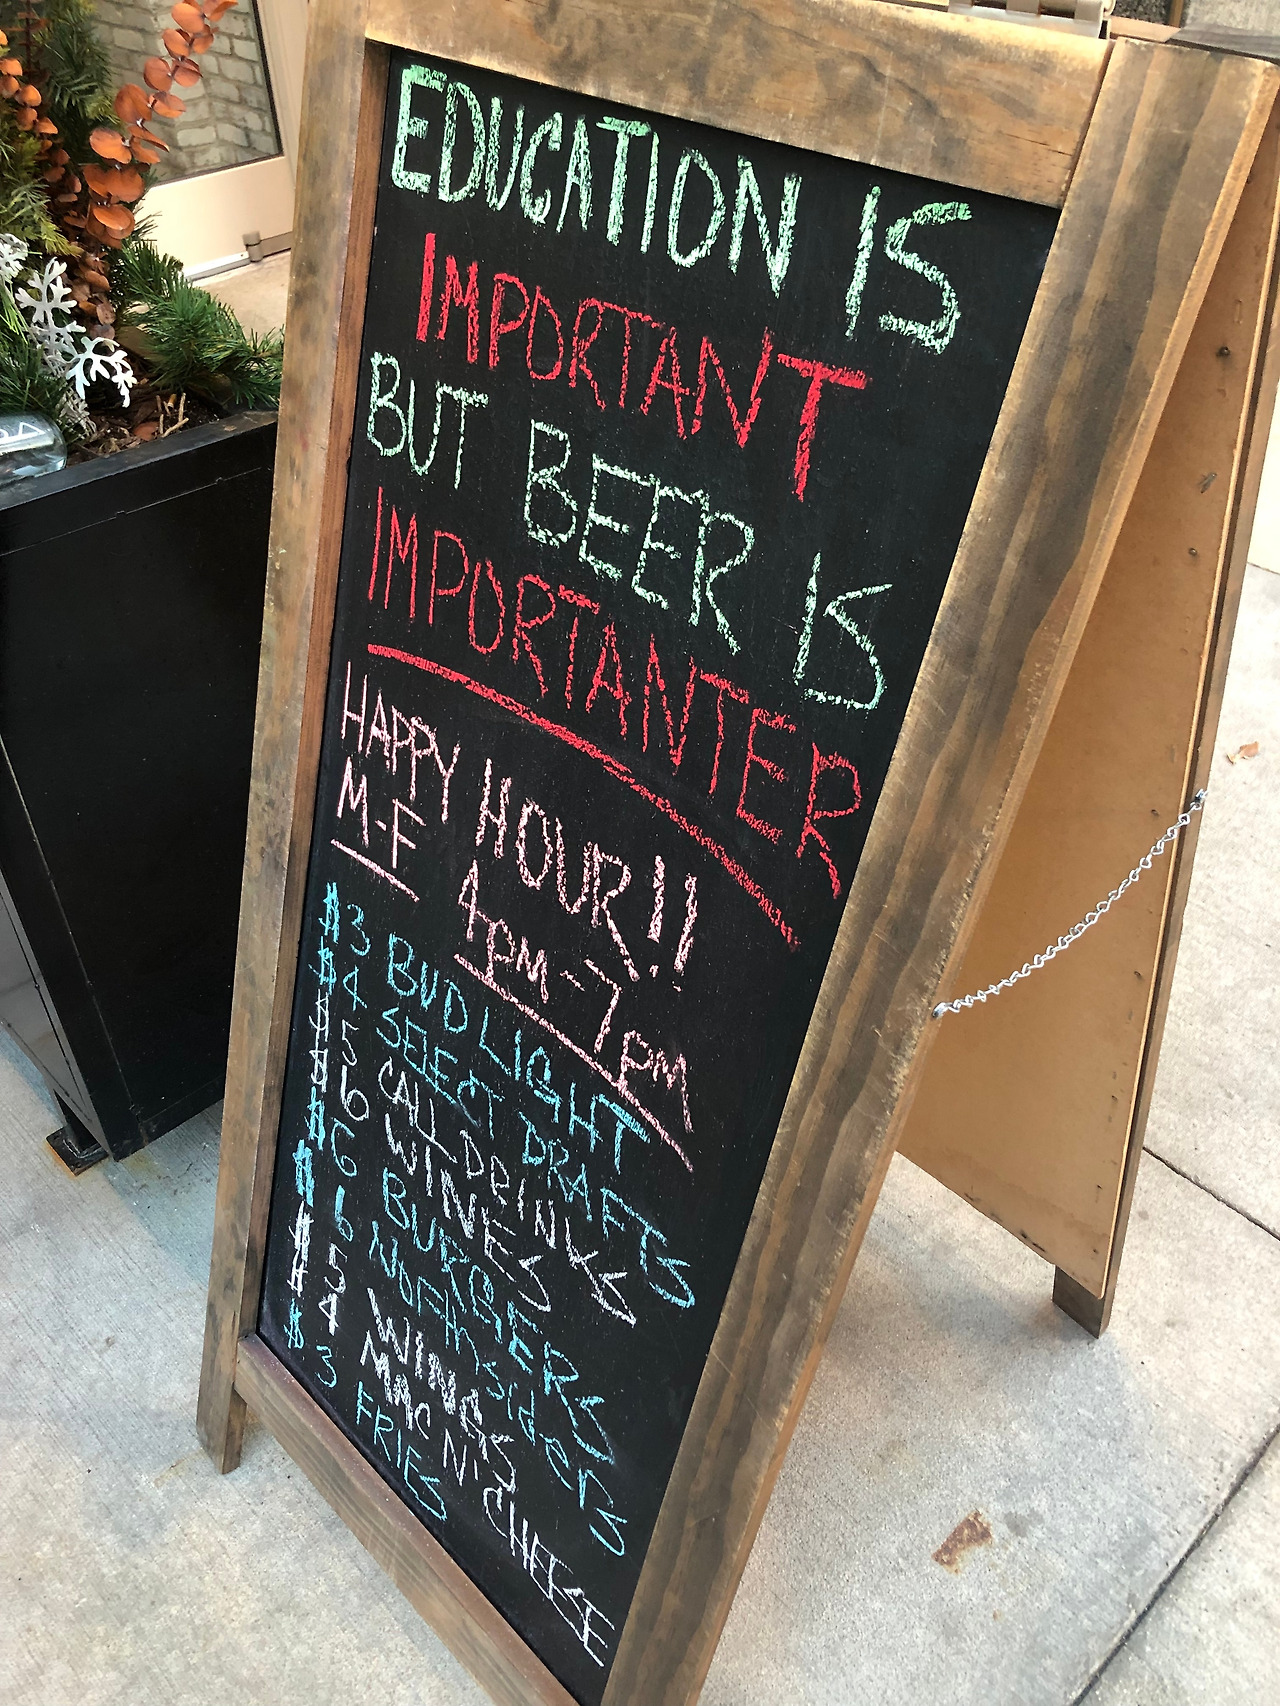 EDUCATION IS
IMPORTANT
BUT BEER IS
IMPORTANTER
HAPPY HOUR!!
M-F 4PM-7PM
$3 BUD LIGHT
$4 SELECT DRAFTS
$5 CALL DRINKS
$6 WINES
$6 BURGERS
$6 Northsiders
$5 WINGS
$4 MAC N' CHEESE
$3 FRIES